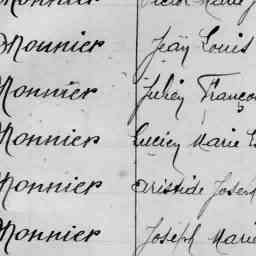 Monnier Jean Louis
Monnier Julien Franço
Monnier Lucien Marie
Monnier Aristide Josep
Monnier Joseph Marie